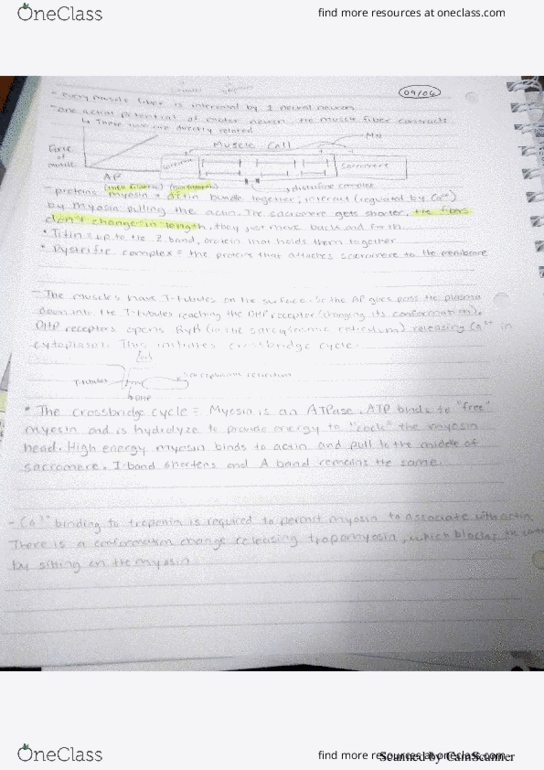 OneClass
find more resources at oneclass.com
09/06
- every muscle fiber is innervated by 1 neural neuron
- one action potential of motor neuron, the muscle fiber contracts
↳ These two are directly related
Force of muscle
AP
Muscle Cell
sarcomere
- proteins myosin + actin bundle together, interact (regulated by Ca²⁺)
by myosin pulling the actin. The sacromere gets shorter, the fibers
don't change in length, they just move back and forth.
• Titin = up to the Z band, protein that holds them together
• Dystrific complex = the protein that attaches sacromere to the membrane
- The muscles have T-tubules on the surface. So the AP goes pass the plasma
down into the T-tubules reaching the DHP receptor (changing its conformation).
DHP receptors opens RyR (in the sarcoplasmic reticulum) releasing Ca²⁺ in
cytoplasm. This initiates crossbridge cycle.
T-tubule
sarcoplasmic reticulum
• The crossbridge cycle = Myosin is an ATPase. ATP binds to "free"
myosin and is hydrolyze to provide energy to "cock" the myosin
head. High energy myosin binds to actin and pull to the middle of
sacromere. I band shortens and A band remains the same.
- Ca²⁺ binding to troponin is required to permit myosin to associate with actin
There is a conformation change releasing tropomyosin, which blocks the
by sitting on the myosin.
OneClass
find more resources at oneclass.com
Scanned by CamScanner